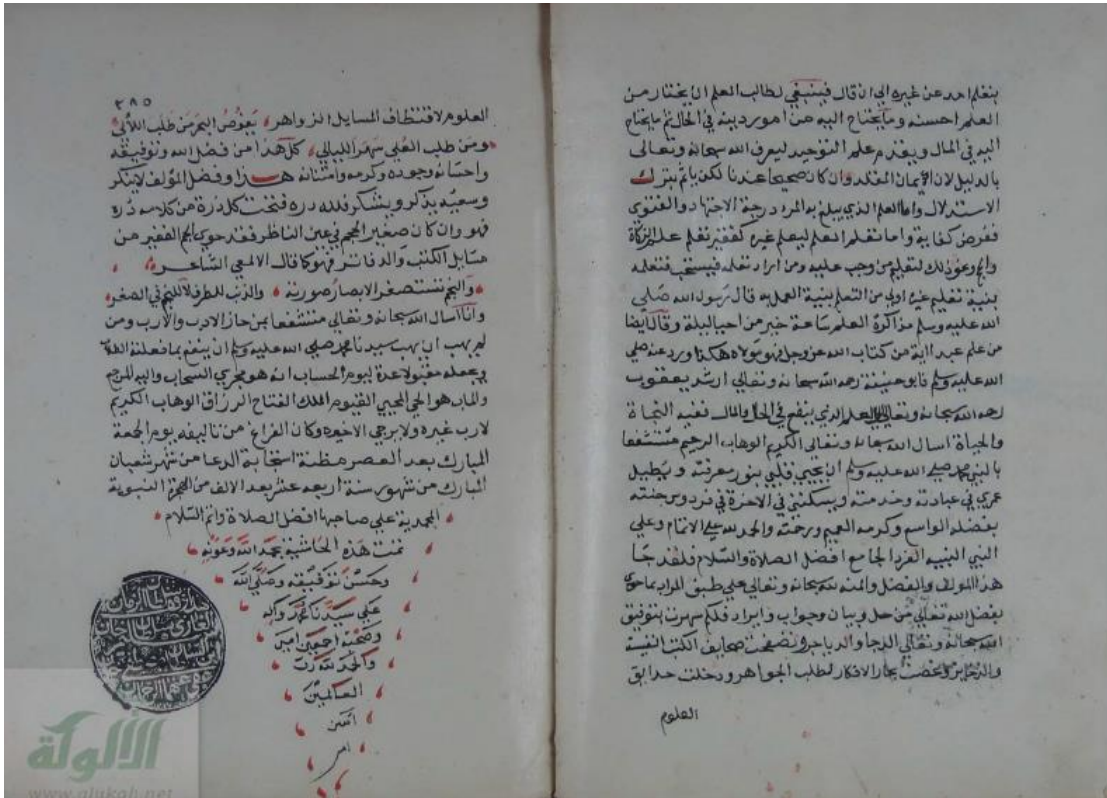 بتعلم احد عن غيره الى ان قال فينبغي لطالب العلم ان يختار من
العلم احسنه وما يحتاج اليه من امور دينه في الحال ثم ما يحتاج
اليه في المال ويقدم علم التوحيد ليعرف الله سبحانه وتعالى
بالدليل لان الايمان المقلد وان كان صحيحا عندنا لكن ياثم بترك
الاستدلال واما العلم الذي يبلغ به المرء درجة الاجتهاد والفتوى
ففرض كفاية واما تعلم العلم ليعلم غيره كفقير تعلم علم الزكاة
والحج ونحو ذلك لتعليم من وجب عليه ومن اراد تعلمه فيستحب فتعلمه
بنية تعليم غيره اولى من التعلم بنية العمل به قال رسول الله صلي
الله عليه وسلم مذاكرة العلم ساعة خير من احيا ليلة وقال ايضا
من علم عبدا اية من كتاب الله عز وجل فهو مولاه هكذا ورد عنه صلي
الله عليه وسلم فابو حنيفة رحمه الله سبحانه وتعالي ارشد يعقوب
رحمه الله سبحانه وتعالي العلم الذي ينفع في الحال والمال ففيه النجاة
والحياة اسال الله سبحانه وتعالي الكريم الوهاب الرحيم متشفعا
بالنبي محمد صلي الله عليه وسلم ان يحيي قلبي بنور معرفته ويطيل
عمري في عبادته وخدمته ويسكنني في الاخرة في فردوس جنته
بفضله الواسع وكرمه العميم ورحمته والحمد لله علي الاتمام وعلي
النبي النبيه الفرد الجامع افضل الصلاة والسلام فلقد جا
هذا المولف والفضل والمنه لله سبحانه وتعالي علي طبق المراد بما حوى
بفضل الله تعالي من حل وبيان وجواب وايراد فلكم سهرت بتوفيق
الله سبحانه وتعالي الدجا والدياجر وتصفحت صحايف الكتب النفيسة
والدخاير وخضت بحار الافكار لطلب الجواهر ودخلت حدايق
العلوم
٢٨٥
العلوم لاقتطاف المسايل الزواهر يغوص البحر من طلب اللآلي
ومن طلب العلى سهر الليالي كل هذا من فضل الله وتوفيقه
واحسانه وجوده وكرمه وامتنانه هذا وفضل المؤلف لا ينكر
وسعيه يذكر ويشكر فلله دره فتحت كل ذرة من كلامه دره
فهو وان كان صغير الحجم في عين الناظر فقد حوى الجم الغفير من
مسايل الكتب والدفاتر فهو كما قال الالمعي الشاعر
والنجم تستصغر الابصار صورته والذنب للطرف لا للنجم في الصغر
وانا اسال الله سبحانه وتعالي متشفعا بمن حاز الادب والارب ومن
لم يهب ان يهب سيدنا محمد صلي الله عليه وسلم ان ينفع بما فعلته الطلاب
ويجعله مقبولا عدة ليوم الحساب انه هو مجري السحاب واليه المرجع
والماب هو الحي المحيي القيوم الملك الفتاح الرزاق الوهاب الكريم
لا رب غيره ولا يرجى الا خيره وكان الفراغ من تاليفه يوم الجمعة
المبارك بعد العصر مظنة استجابة الدعا من شهر شعبان
المبارك من شهور سنة اربعه عشر بعد الالف من الهجرة النبوية
المحمدية علي صاحبها افضل الصلاة واتم السلام
تمت هذه الحاشية بحمد الله وعونه
وحسن توفيقه وصلى الله
علي سيدنا محمد واله
وصحبه اجمعين امين
والحمد لله رب
العالمين
امين
امين
الألوكة
www.alukah.net